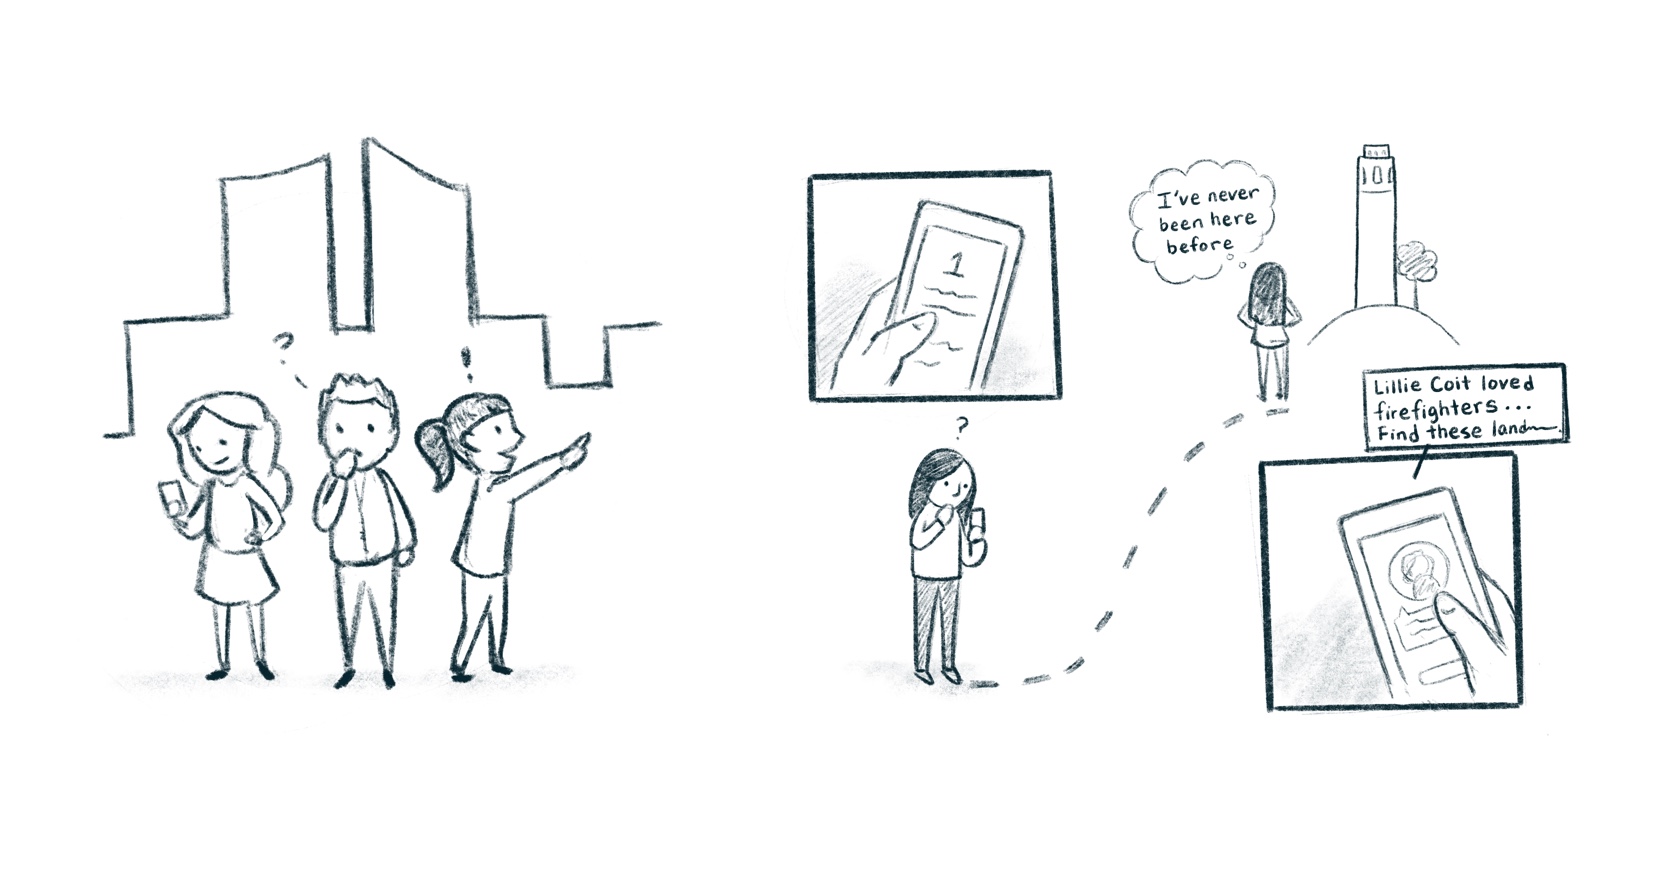 ?
!
1
I've never
been here
before
?
Lillie Coit loved
firefighters...
Find these